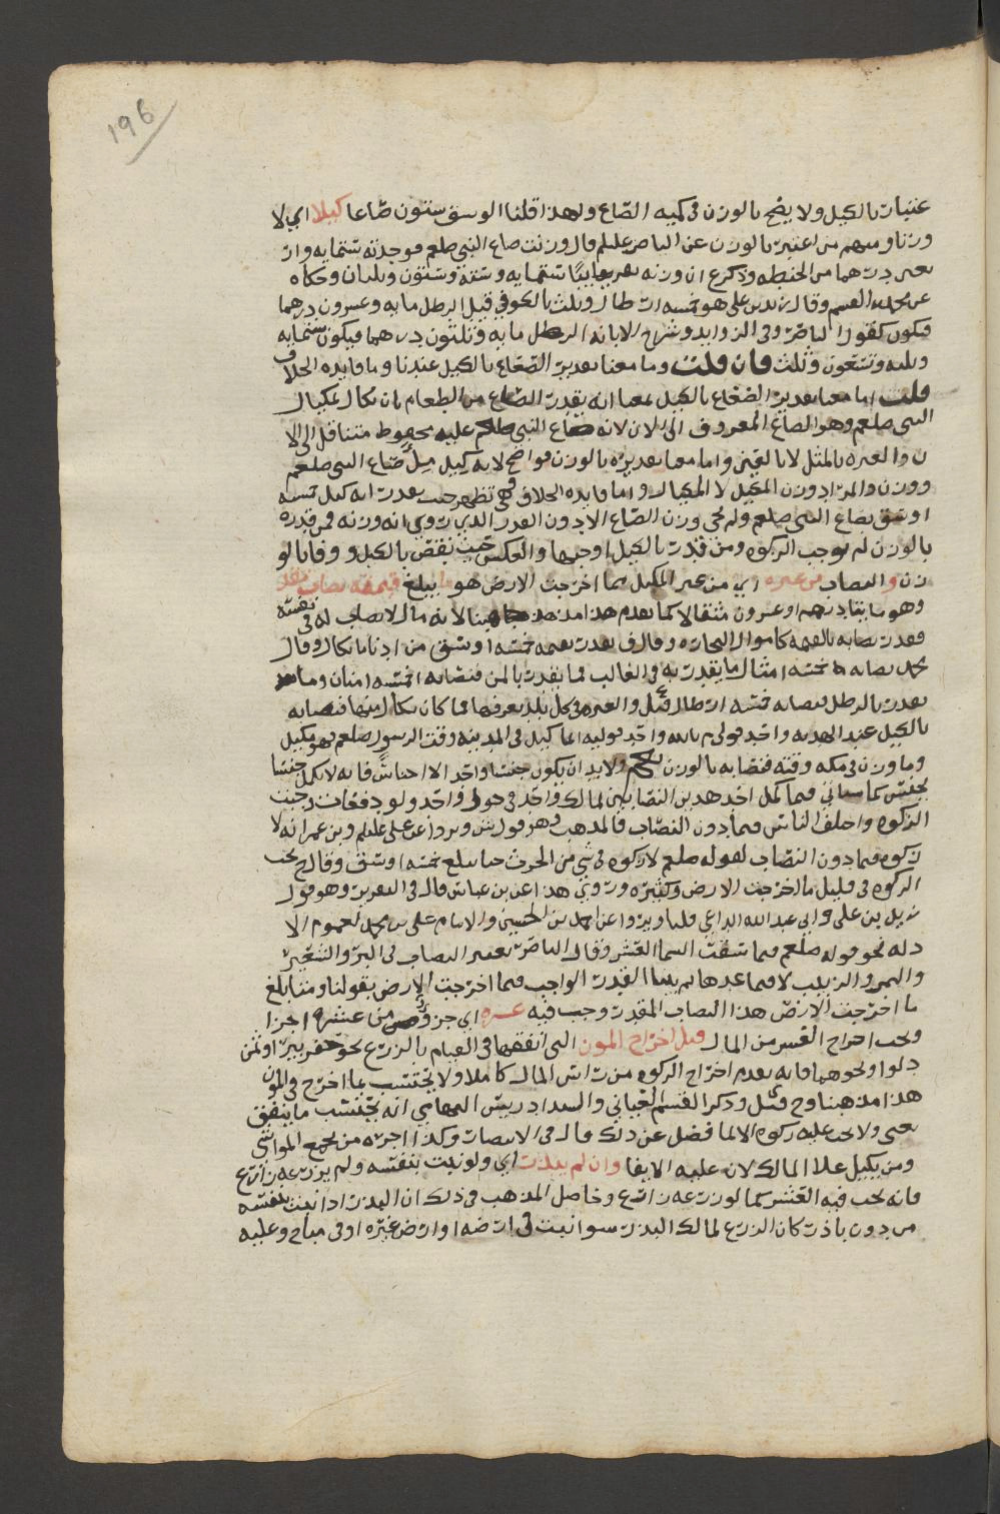 196
عتبار بالكيل ولا يصح بالوزن في كمية الصاع ولهذا قلنا الوسق ستون صاعا كيلا اي لا
وزنا ومنهم من اعتبر بالوزن عن الناصر عليلم قال وزنت صاع النبي صلعم فوجدته ستمايه وار
بعين درهما من الحنطه وذكر ع ان وزنه تقريبا ستمايه وسته وستون وثلثان وحكاه
عن محمد القسم وقال زيد بن علي هو خمسه ارطال وثلث بالكوفي قيل الرطل مايه وعشرون درهما
فيكون كقول الناصر وفي الزوايد وشرح الابانه الرطل مايه وثلثون درهما فيكون ستمايه
وثلثه وتسعون وثلث فان قلت وما معنا تقدير الصاع بالكيل عندنا وما فايده الخلاف
قلت اما معنا تقدير الصاع بالكيل فمعنا انه يقدر الصاع من الطعام بان يكال بمكيال
النبي صلعم وهو الصاع المعروف الى الان لانه صاع النبي صلعم عليه محفوط متناقل الى الا
ن والعبره بالمثل لا بالعين واما معنا تقديره بالوزن فواضح لانه كيل مثل صاع النبي صلعم
ووزن والمراد وزن المكيل لا المكيال واما فايده الخلاف فهي تظهر حيث يقدر انه كيل خمسه
اوسق بصاع النبي صلعم ولم يجي وزن الصاع الا دون القدر الذي روي انه وزنه فمن قدره
بالوزن لم يوجب الزكوه ومن قدر بالكيل اوجبها والعكس حيث نقص بالكيل ووفا بالو
زن والنصاب من غيره اي من غير المكيل مما اخرجت الارض هو ما يبلغ قيمته نصاب نقد
وهو مايتا درهم او عشرون مثقالا كما تقدم هذا مذهبنا لانه مال لا نصاب له في نفسه
فقدر نصابه بالقيمه كاموال التجاره وقال ف يقدر بقيمه خمسه اوسق من ادنا ما يكال وقال
محمد نصابه خمسه امثال ما يقدر به في الغالب فما يقدر بالمن فنصابه خمسه امنان وما
يقدر بالرطل فنصابه خمسه ارطال قيل والعبره في كل بلد بعرفها فما كان يكال منها فنصابه
بالكيل عند الهدويه واحد قولي م بالله واحد قوليه انما كيل في المدينه وقت الرسول صلعم فهو مكيل
وما وزن في مكه وقته فنصابه بالوزن ولا بد ان يكون جنسا واحد الا اجناس فانه لا يكمل جنسا
بجنس كما سياتي فما كمل احد هذين النصابين لمالك واحد في حول واحد ولو دفعات وجبت
الزكوه واختلف الناس فيما دون النصاب فالمذهب وهو قول ش وروا عن علي عليلم وبن عمر انه لا
زكوه فيما دون النصاب لقوله صلعم لا زكوه في شي من الحرث حتا يبلغ خمسه اوسق وقال ح تجب
الزكوه في قليل ما اخرجت الارض وكثيره وروي هذا عن بن عباس قال في التقرير وهو قول
زيد بن علي وابي عبد الله الداعي قلنا ويروا عن احمد بن الحسين والامام علي بن محمد لعموم الا
دله نحو قوله صلعم فيما سقت السما العشر وقال الناصر يعتبر النصاب في البر والشعير
والتمر والزبيب لا فيما عداها ثم بينا القدر الواجب فيما اخرجت الارض بقولنا ومتا بلغ
ما اخرجت الارض هذا النصاب المقدر وجب فيه عشره اي جزو من عشره اجزا
ويجب اخراج العشر من المال قبل اخراج المون التي انفقها في القيام بالزرع نحو حفر بير او ثمن
دلو او نحوهما فانه يقدم اخراج الزكوه من راس المال كاملا ولا يحتسب بما اخرج في المون
هذا مذهبنا وح وش وذكر القسم العياني والسيد ادريس التهامي انه يحتسب ما ينفق
يعني ولا يجب عليه زكوه الا لما فضل عن ذلك قال في الانتصار وكذا اجره من يجمع المواشي
ومن يكيل علا المالك لان عليه الايفا وان لم يبذر اي ولو نبت بنفسه ولم يزرعه زارع
فانه يجب فيه العشر كما لو زرعه زارع وحاصل المذهب في ذلك ان البذر اذا نبت بنفسه
من دون باذر كان الزرع لمالك البذر سوا نبت في ارضه او ارض غيره او في مباح وعليه